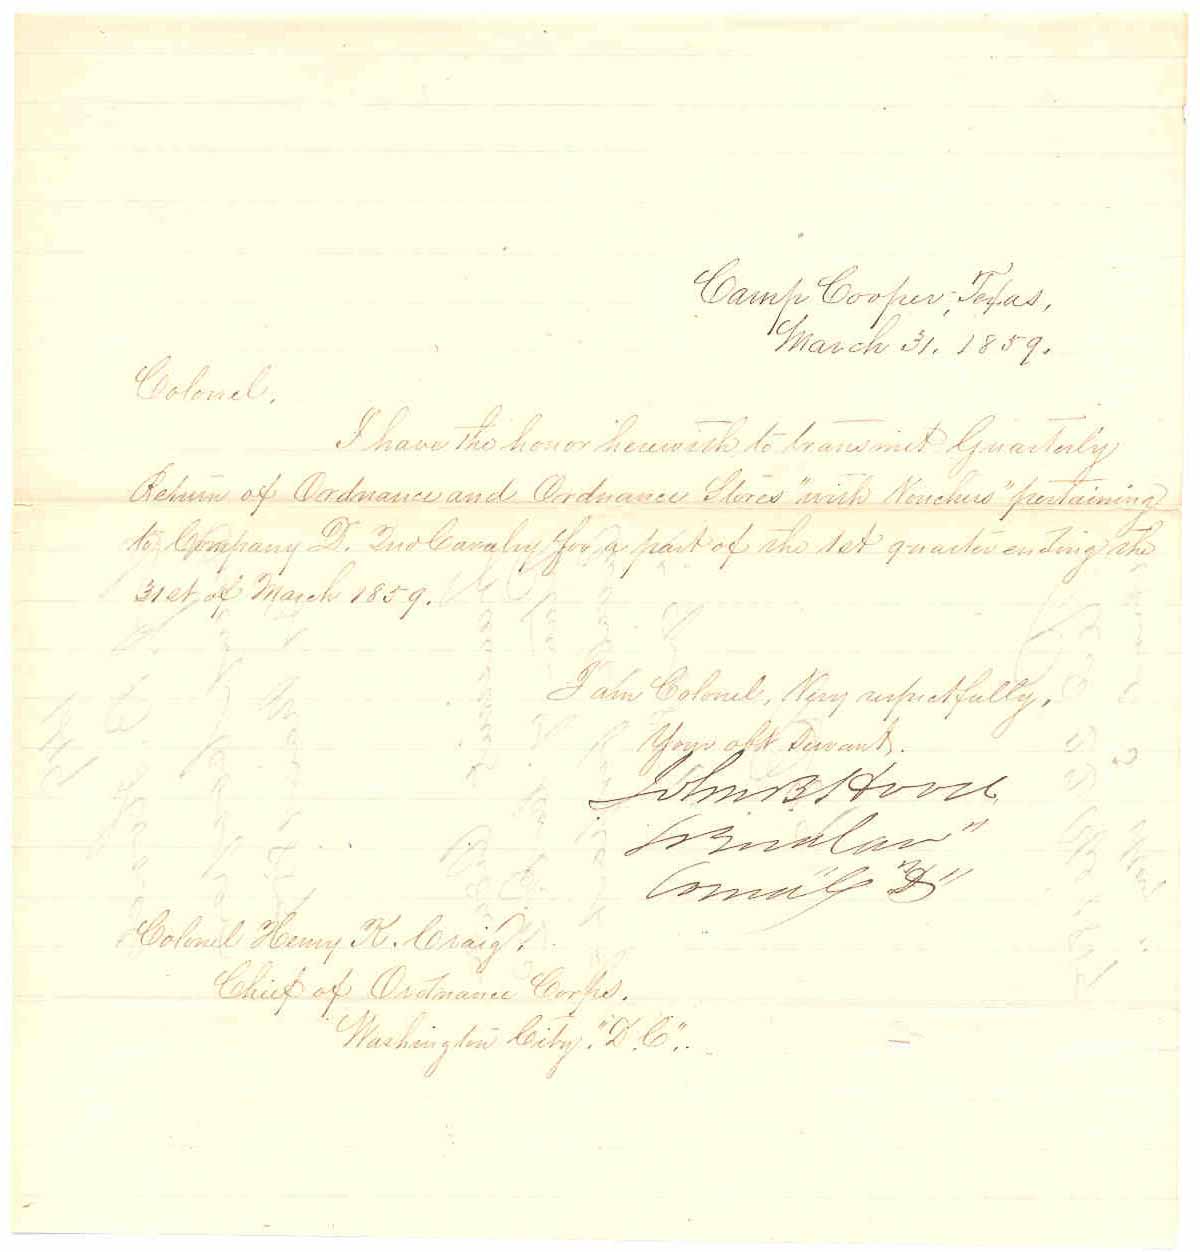 Camp Cooper, Texas,
March 31. 1859.
Colonel,
I have the honor herewith to transmit Quarterly
Return of Ordnance and Ordnance Stores "with Vouchers" pertaining
to Company D. 2nd Cavalry for a part of the 1st quarter ending the
31st of March 1859.
I am Colonel, Very respectfully,
Your obt Servant.
John B Hood
Comd'g "D"
Colonel Henry K. Craig.
Chief of Ordnance Corps.
Washington City. "D.C".